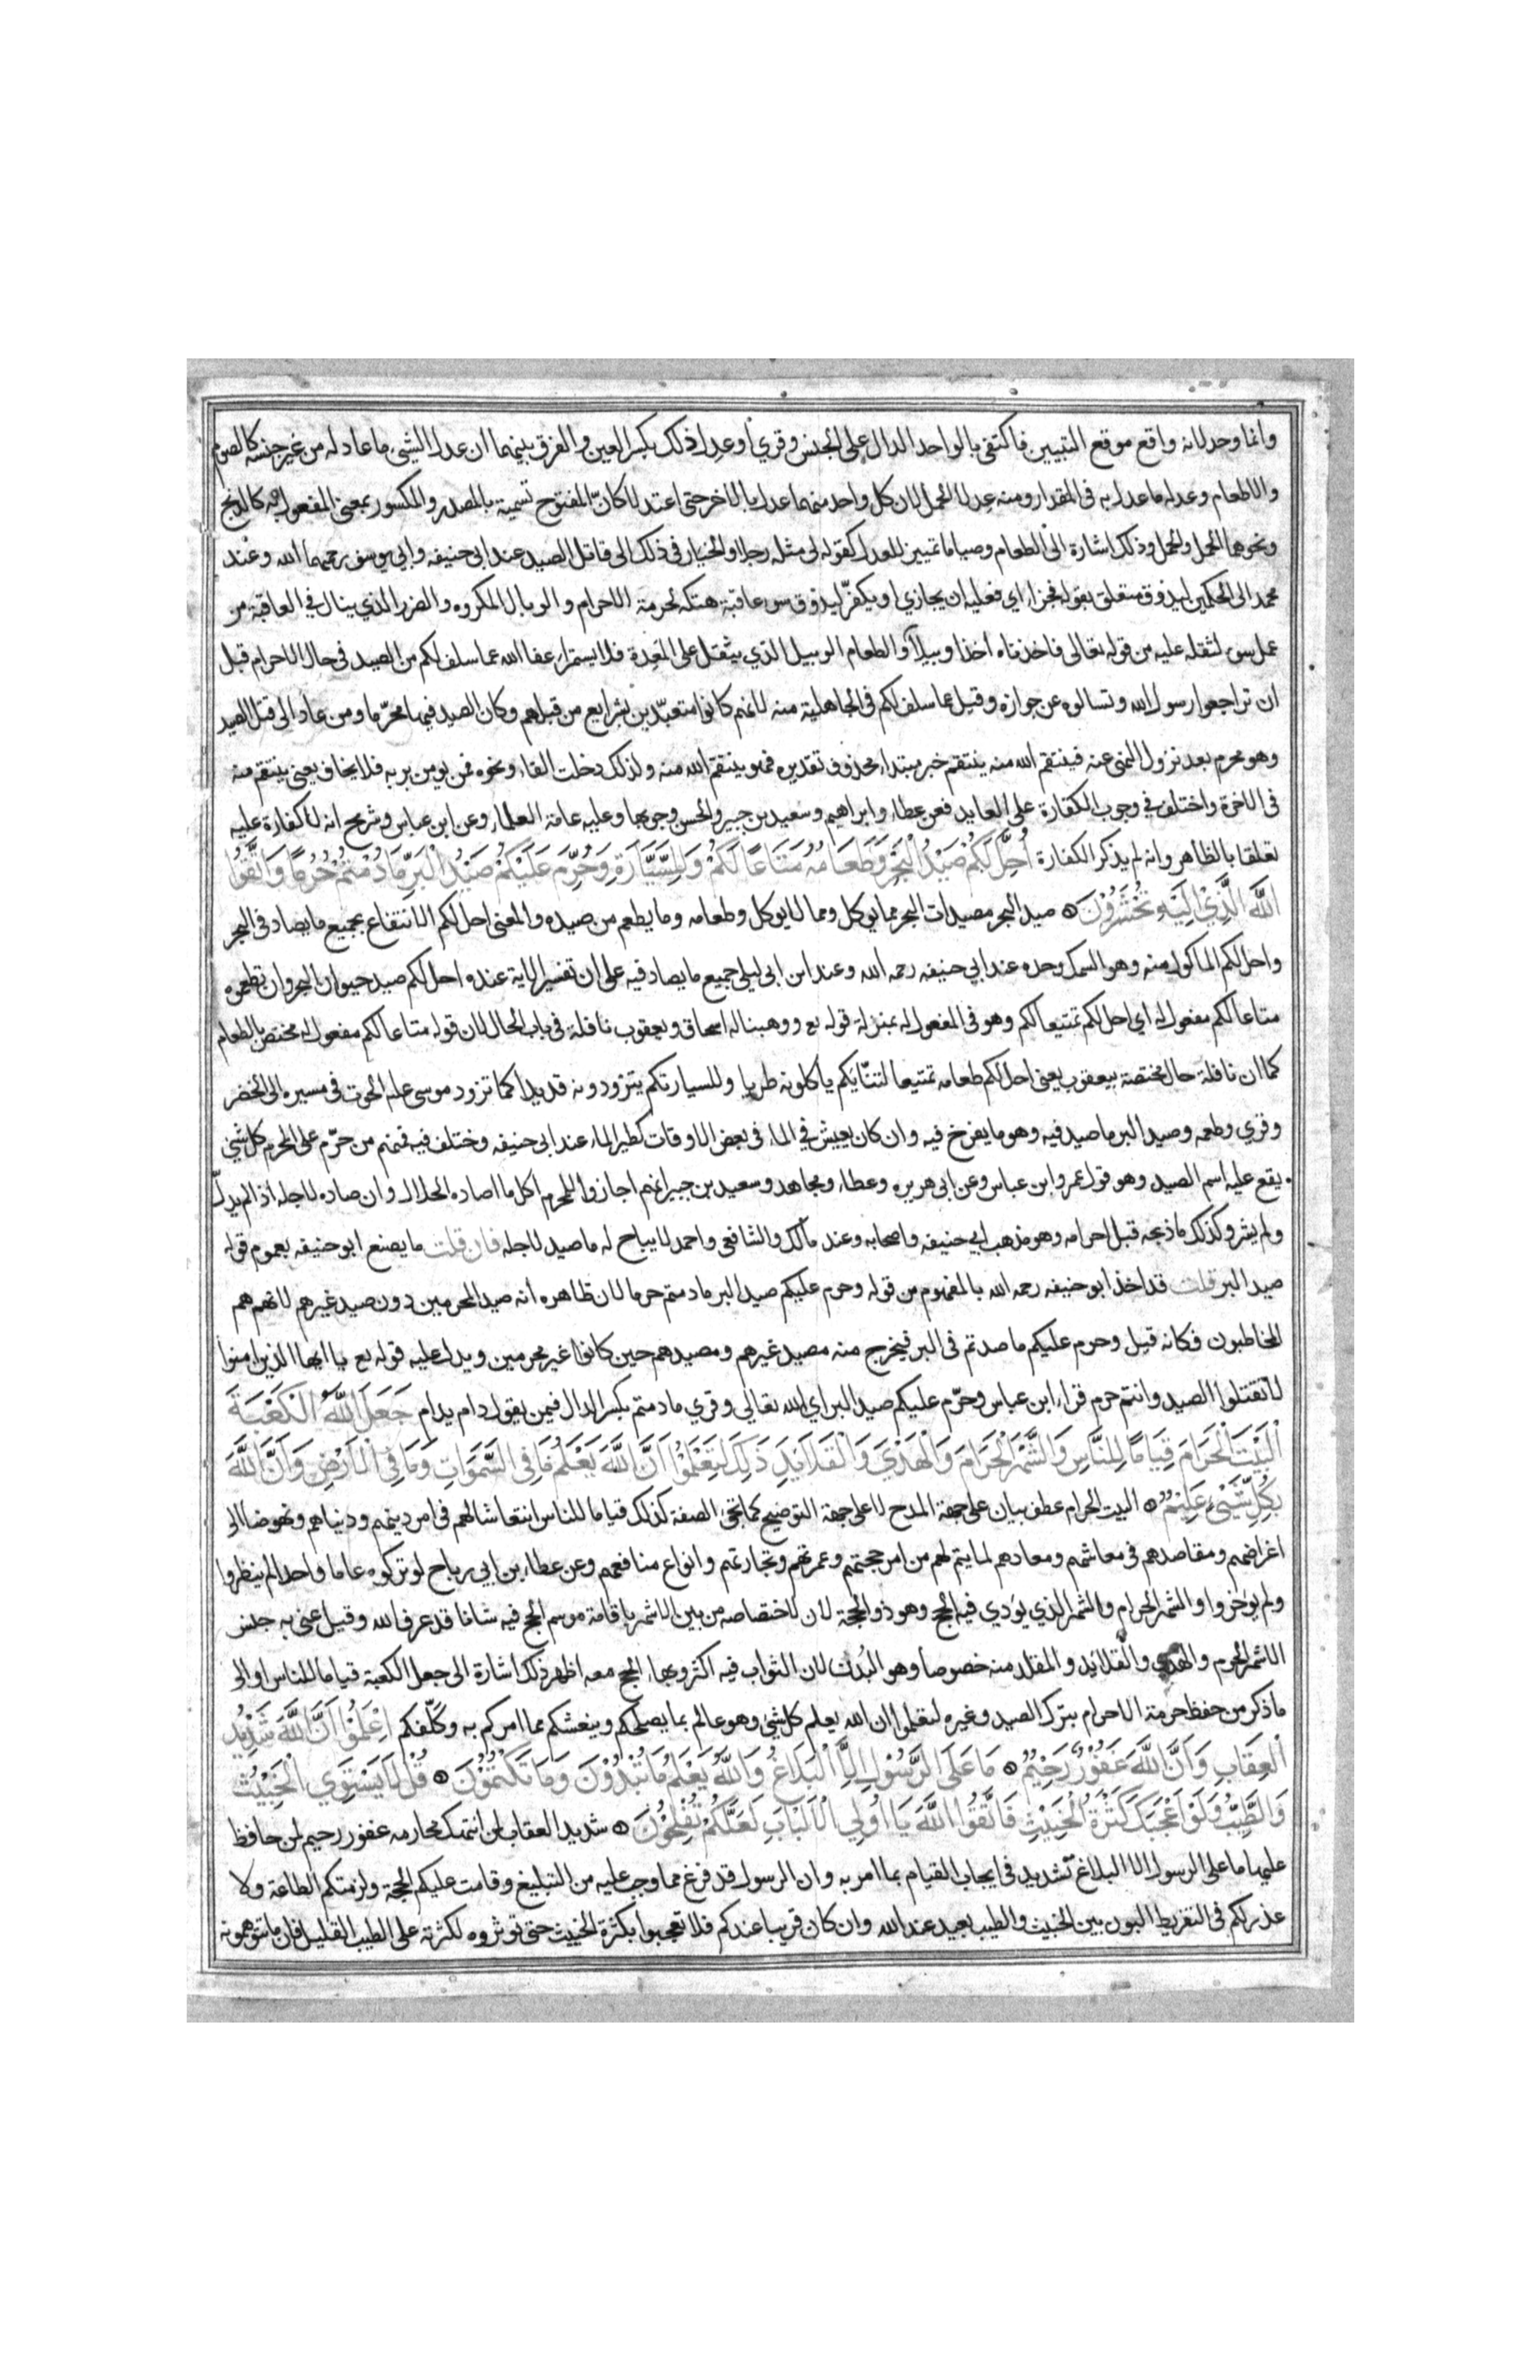 وانما وحد لانه واقع موقع التبيين فاكتفى بالواحد الدال على الجنس وقري أو عدل ذلك بكسر العين والفرق بينهما ان عدل الشيى ما عادله من غير جنسه كالصوم
والاطعام وعدله ما عدل به في المقدار ومنه عدلا الحمل لان كل واحد منهما عدل بالاخر حتى اعتدلا كانّ المفتوح تسمية بالمصدر والمكسور بمعنى المفعول به كالذبح
ونحوهما الحمل والحمل وذلك اشارة الى الطعام وصياما تمييز للعدل كقوله لى مثله رجلا والخيار في ذلك الى قاتل الصيد عند ابى حنيفه وابي يوسف رحمهما الله وعند
محمد الى الحكمين ليذوق متعلق بقوله فجزاء اي فعليه ان يجازي او يكفّر ليذوق سوء عاقبة هتكه لحرمة الاحرام والوبال المكروه والضرر الذي ينال في العاقبة من
عمل سوء لثقله عليه من قوله تعالى فاخذناه أخذا وبيلاً والطعام الوبيل الذي يثقل على المَعِدة فلا يستمراء عفا الله عما سلف لكم من الصيد في حال الاحرام قبل
ان تراجعوا رسول الله وتسالوه عن جوازه وقيل عما سلف لكم في الجاهلية منه لانهم كانوا متعبّدين بشرايع من قبلهم وكان الصيد فيها محرّما ومن عاد الى قتل الصيد
وهو محرم بعد نزول النهى عنه فينتقم الله منه ينتقم خبر مبتداء محذوف تقديره فهو ينتقم الله منه ولذلك دخلت الفاء ونحوه فمن يومن بربه فلا يخاف يعنى ينتقم منه
فى الاخرة واختلف في وجوب الكفارة على العايد فعن عطاء وابراهيم وسعيد بن جبير والحسن وجوبها وعليه عامة العلماء وعن ابن عباس وشريح انه لا كفارة عليه
تعلقا بالظاهر وانه لم يذكر الكفارة أُحِلَّ لَكُمْ صَيْدُ الْبَحْرِ وَطَعَامُهُ مَتَاعًا لَكُمْ وَلِلسَّيَّارَةِ وَحُرِّمَ عَلَيْكُمْ صَيْدُ الْبَرِّ مَا دُمْتُمْ حُرُمًا وَاتَّقُوا
اللَّهَ الَّذِي اِلَيْهِ تُحْشَرُوْنَ ۞ صيد البحر مصيدات البحر مما يوكل ومما لا يوكل وطعامه وما يطعم من صيده والمعنى احل لكم الانتفاع بجميع ما يصاد في البحر
واحل لكم الماكول منه وهو السمك وحده عند ابي حنيفه رحمه الله وعند ابن ابى ليلى جميع ما يصاد فيه على ان تفسير الاية عنده احل لكم صيد حيوان البحر وان تطعموه
متاعا لكم مفعول له اي احل لكم تمتيعا لكم وهو في المفعول له بمنزلة قوله تع ووهبنا له اسحاق ويعقوب نافلة في باب الحال لان قوله متاعا لكم مفعول له مختص بالطعام
كما ان نافلة حال مختصة بيعقوب يعنى احل لكم طعامه تمتيعا لتنّايكم ياكلونه طريا وللسيارتكم يتزودونه قديدا كما تزود موسى علم الحوت في مسيره الى الخضر
وقري وطعمه وصيد البر ما صيد فيه وهو ما يفرخ فيه وان كان يعيش في الماء في بعض الاوقات كطير الماء عند ابى حنيفه وختلف فيه فمنهم من حرّم على المحرم كل شئ
يقع عليه اسم الصيد وهو قول عمر وابن عباس وعن ابى هريره وعطاء ومجاهد وسعيد بن جبير انهم اجازوا للمحرم اكل ما اصاده الحلال وان صاده لاجله اذا لم يدلّ
ولم يشر وكذلك ما ذبحه قبل احرامه وهو مذهب ابي حنيفه واصحابه وعند مالك والشافعي واحمد لا يباح له ما صيد لاجله فان قلت ما يصنع ابو حنيفه بعموم قوله
صيد البر قلت قد اخذ ابو حنيفه رحمه الله بالمفهوم من قوله وحرم عليكم صيد البر ما دمتم حرما لان ظاهره انه صيد المحرمين دون صيد غيرهم لانهم هم
المخاطبون فكانه قيل وحرم عليكم ما صدتم في البر فيخرج منه مصيد غيرهم ومصيدهم حين كانوا غير محرمين ويدل عليه قوله تع يا ايها الذين امنوا
لا تقتلوا الصيد وانتم حرم قراء ابن عباس وحرّم عليكم صيد البر اي الله تعالى وقري ما دمتم بكسر الدال فيمن يقول دام يدام جَعَلَ اللَّهُ الْكَعْبَةَ
الْبَيْتَ الْحَرَامَ قِيَامًا لِلنَّاسِ وَالشَّهْرَ الْحَرَامَ وَالْهَدْيَ وَالْقَلَايِدَ ذَلِكَ لِتَعْلَمُوا أَنَّ اللَّهَ يَعْلَمُ مَا فِى السَّمَوَاتِ وَمَا فِى الْاَرْضِ وَاَنَّ اللَّهَ
بِكُلِّ شَيْىءٍ عَلِيْمٌ ۞ البيت الحرام عطف بيان على جهة المدح لا على جهة التوضيح كما تجئ الصفة كذلك قياما للناس انتعاشا لهم فى امر دينهم ودنياهم ونهوضا الى
اغراضهم ومقاصدهم في معاشهم ومعادهم لما يتم لهم من امر حجهم وعمرتهم وتجارتهم وانواع منافعهم وعن عطاء بن ابي رباح لو تركوه عاما واحدا لم ينظروا
ولم يوخروا والشهر الحرام والشهر الذي يؤدي فيه الحج وهو ذو الحجة لان لاختصاصه من بين الاشهر باقامة موسم الحج فيه شانا قد عرف الله وقيل عنى به جنس
الاشهر الحرم والهدي والقلائد والمقلد منه خصوصا وهو البُدن لان الثواب فيه اكثر وبهاء الحج معه اظهر ذلك اشارة الى جعل الكعبة قياما للناس او الى
ما ذكر من حفظ حرمة الاحرام بترك الصيد وغيره لتعلموا ان الله يعلم كل شئ وهو عالم بما يصلحكم وينعشكم مما امركم به وكلّفكم اِعْلَمُوْا اَنَّ اللَّهَ شَدِيْدُ
الْعِقَابِ وَاَنَّ اللَّهَ غَفُوْرٌ رَحِيْمٌ ۞ مَا عَلَى الرَّسُوْلِ اِلَّا الْبَلَاغُ وَاللَّهُ يَعْلَمُ مَا تُبْدُوْنَ وَمَا تَكْتُمُوْنَ ۞ قُلْ لَا يَسْتَوِي الْخَبِيْثُ
وَالطَّيِّبُ وَلَوْ اَعْجَبَكَ كَثْرَةُ الْخَبِيْثِ فَاتَّقُوا اللَّهَ يَا اُولِي الْاَلْبَابِ لَعَلَّكُمْ تُفْلِحُوْنَ ۞ شديد العقاب لمن انتهك محارمه غفور رحيم لمن حافظ
عليها ما على الرسول الا البلاغ تشديد في ايجاب القيام بما امر به وان الرسول قد فرغ مما وجب عليه من التبليغ وقامت عليكم الحجة ولزمتكم الطاعة ولا
عذر لكم فى التفريط البون بين الخبيث والطيب بعيد عند الله وان كان قريبا عندكم فلا تعجبوا بكثرة الخبيث حتى توثروه لكثرته على الطيب القليل فان ما تتوهمونه